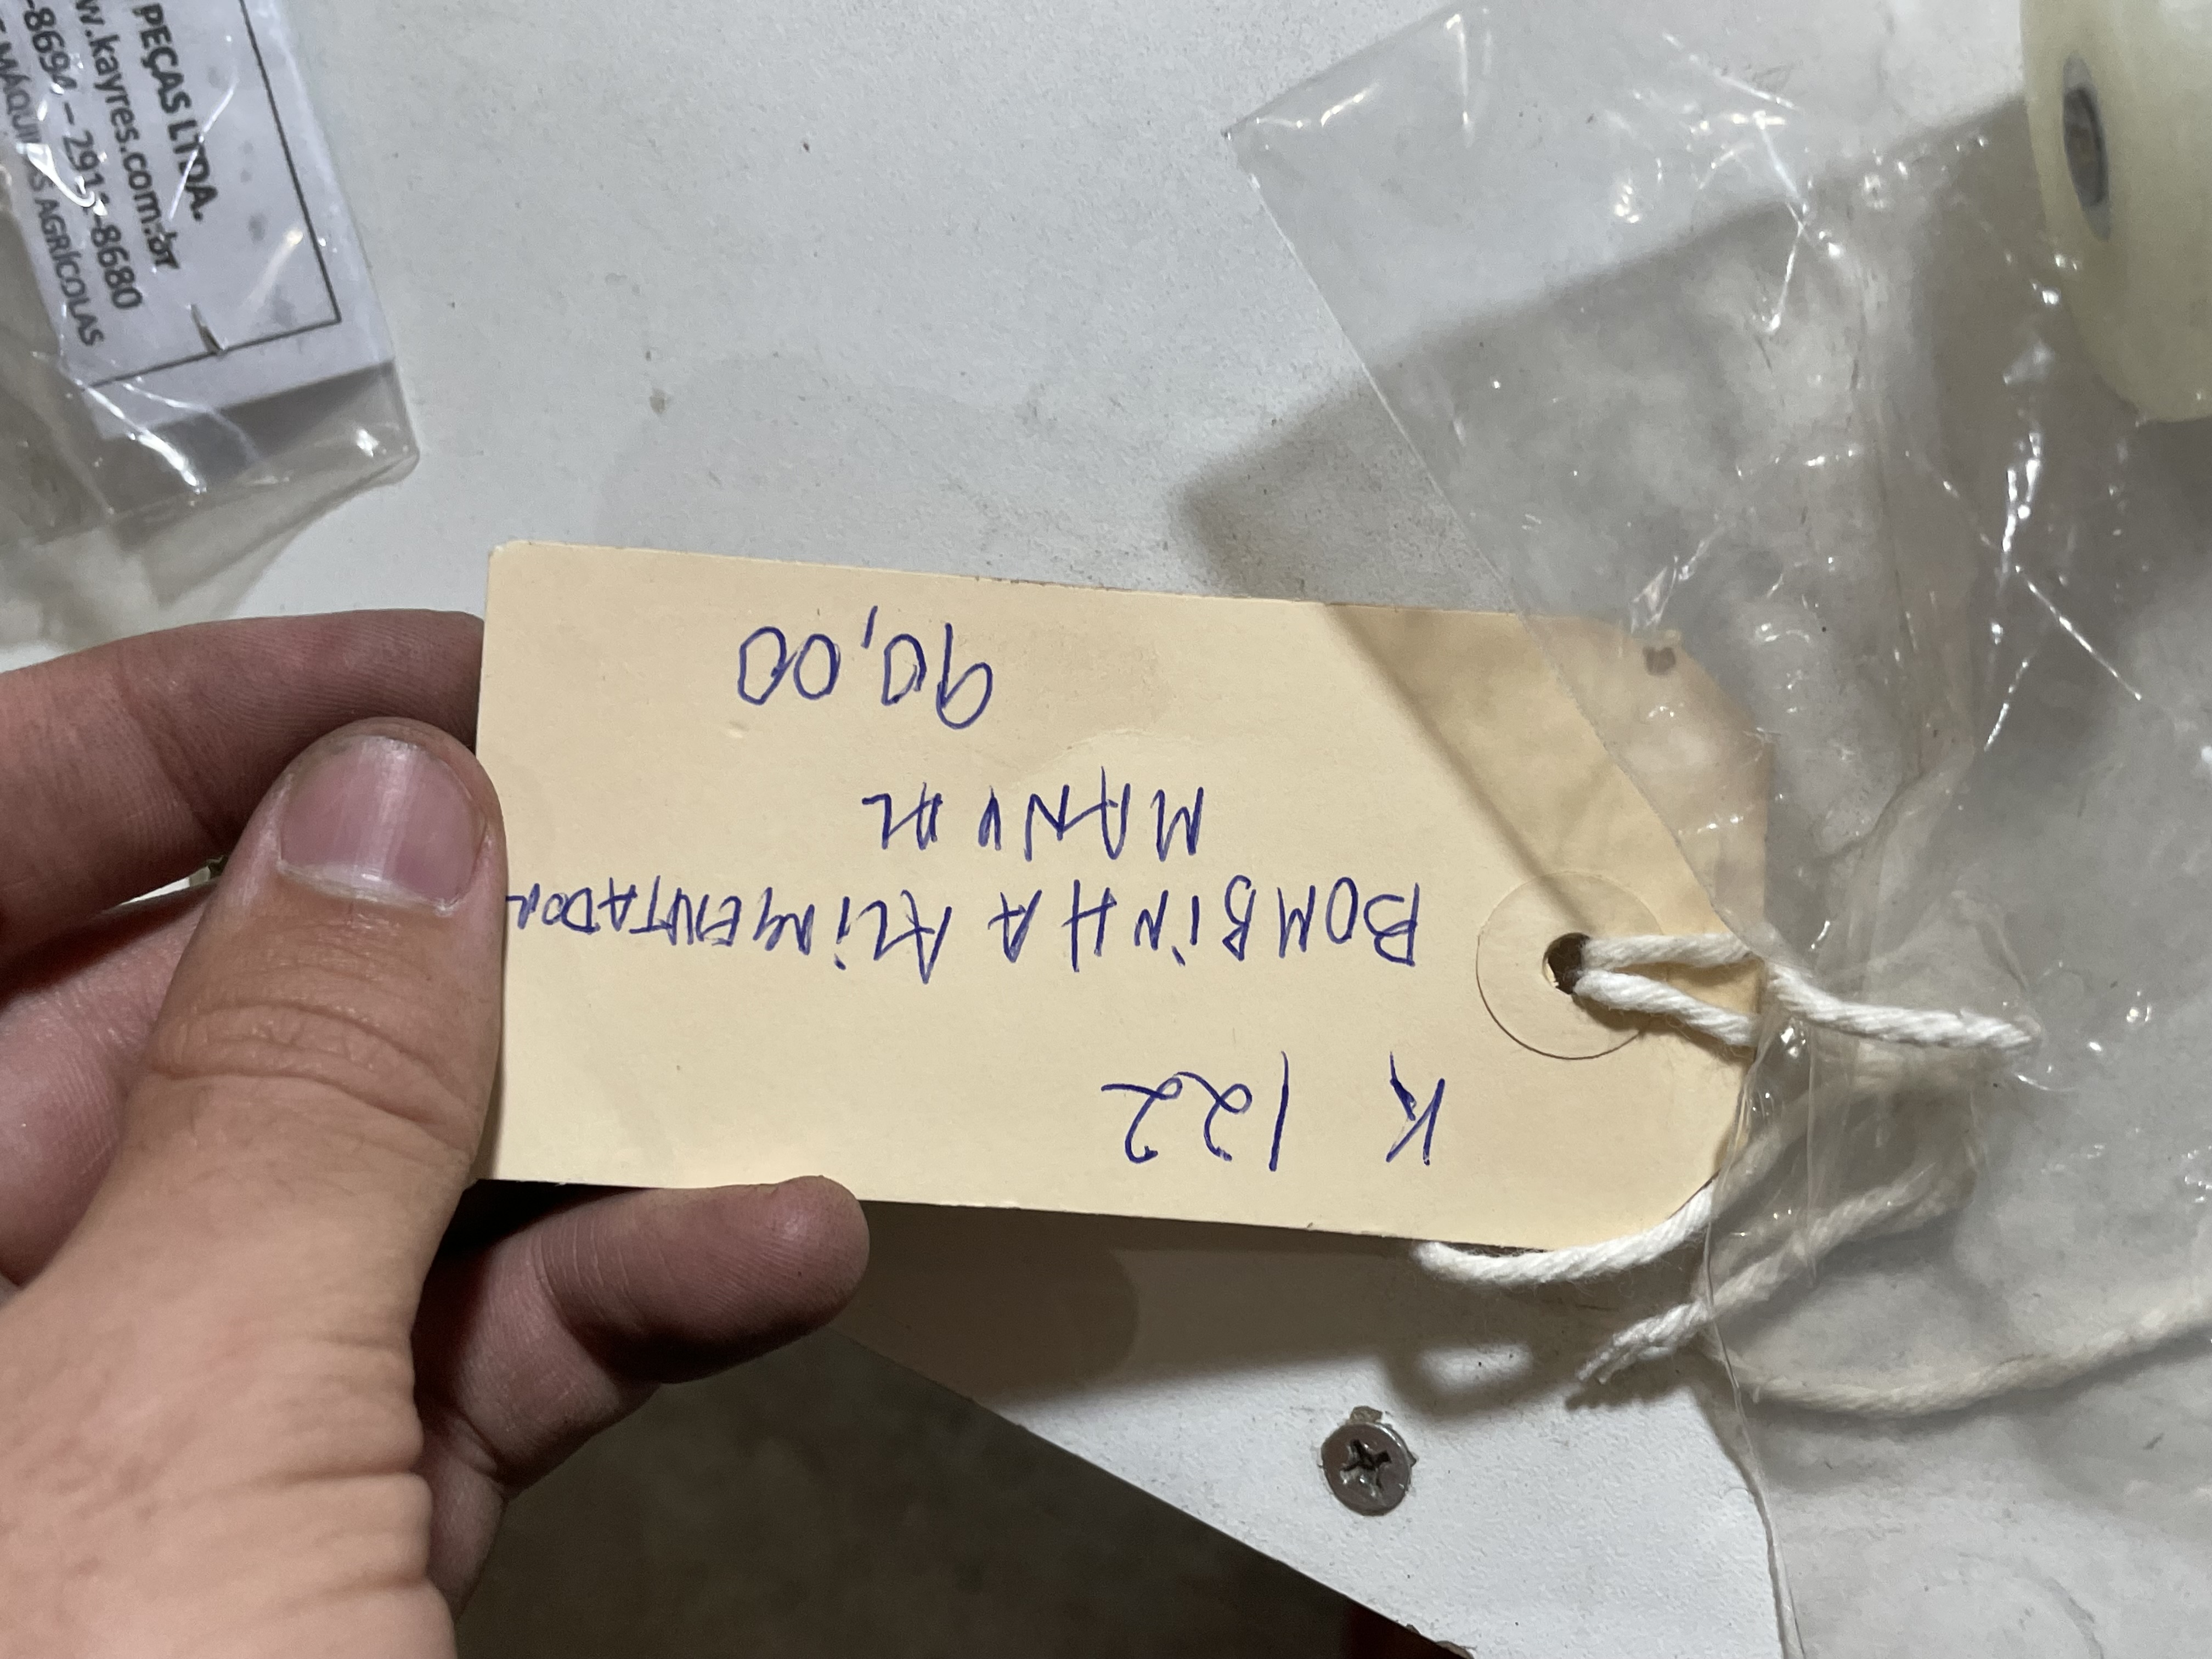 K 122
BOMBINHA ALIMENTADOR
MANUAL
90,00
PEÇAS LTDA.
w.kayres.com.br
-8694 – 291 -8680
MÁQUINAS AGRÍCOLAS